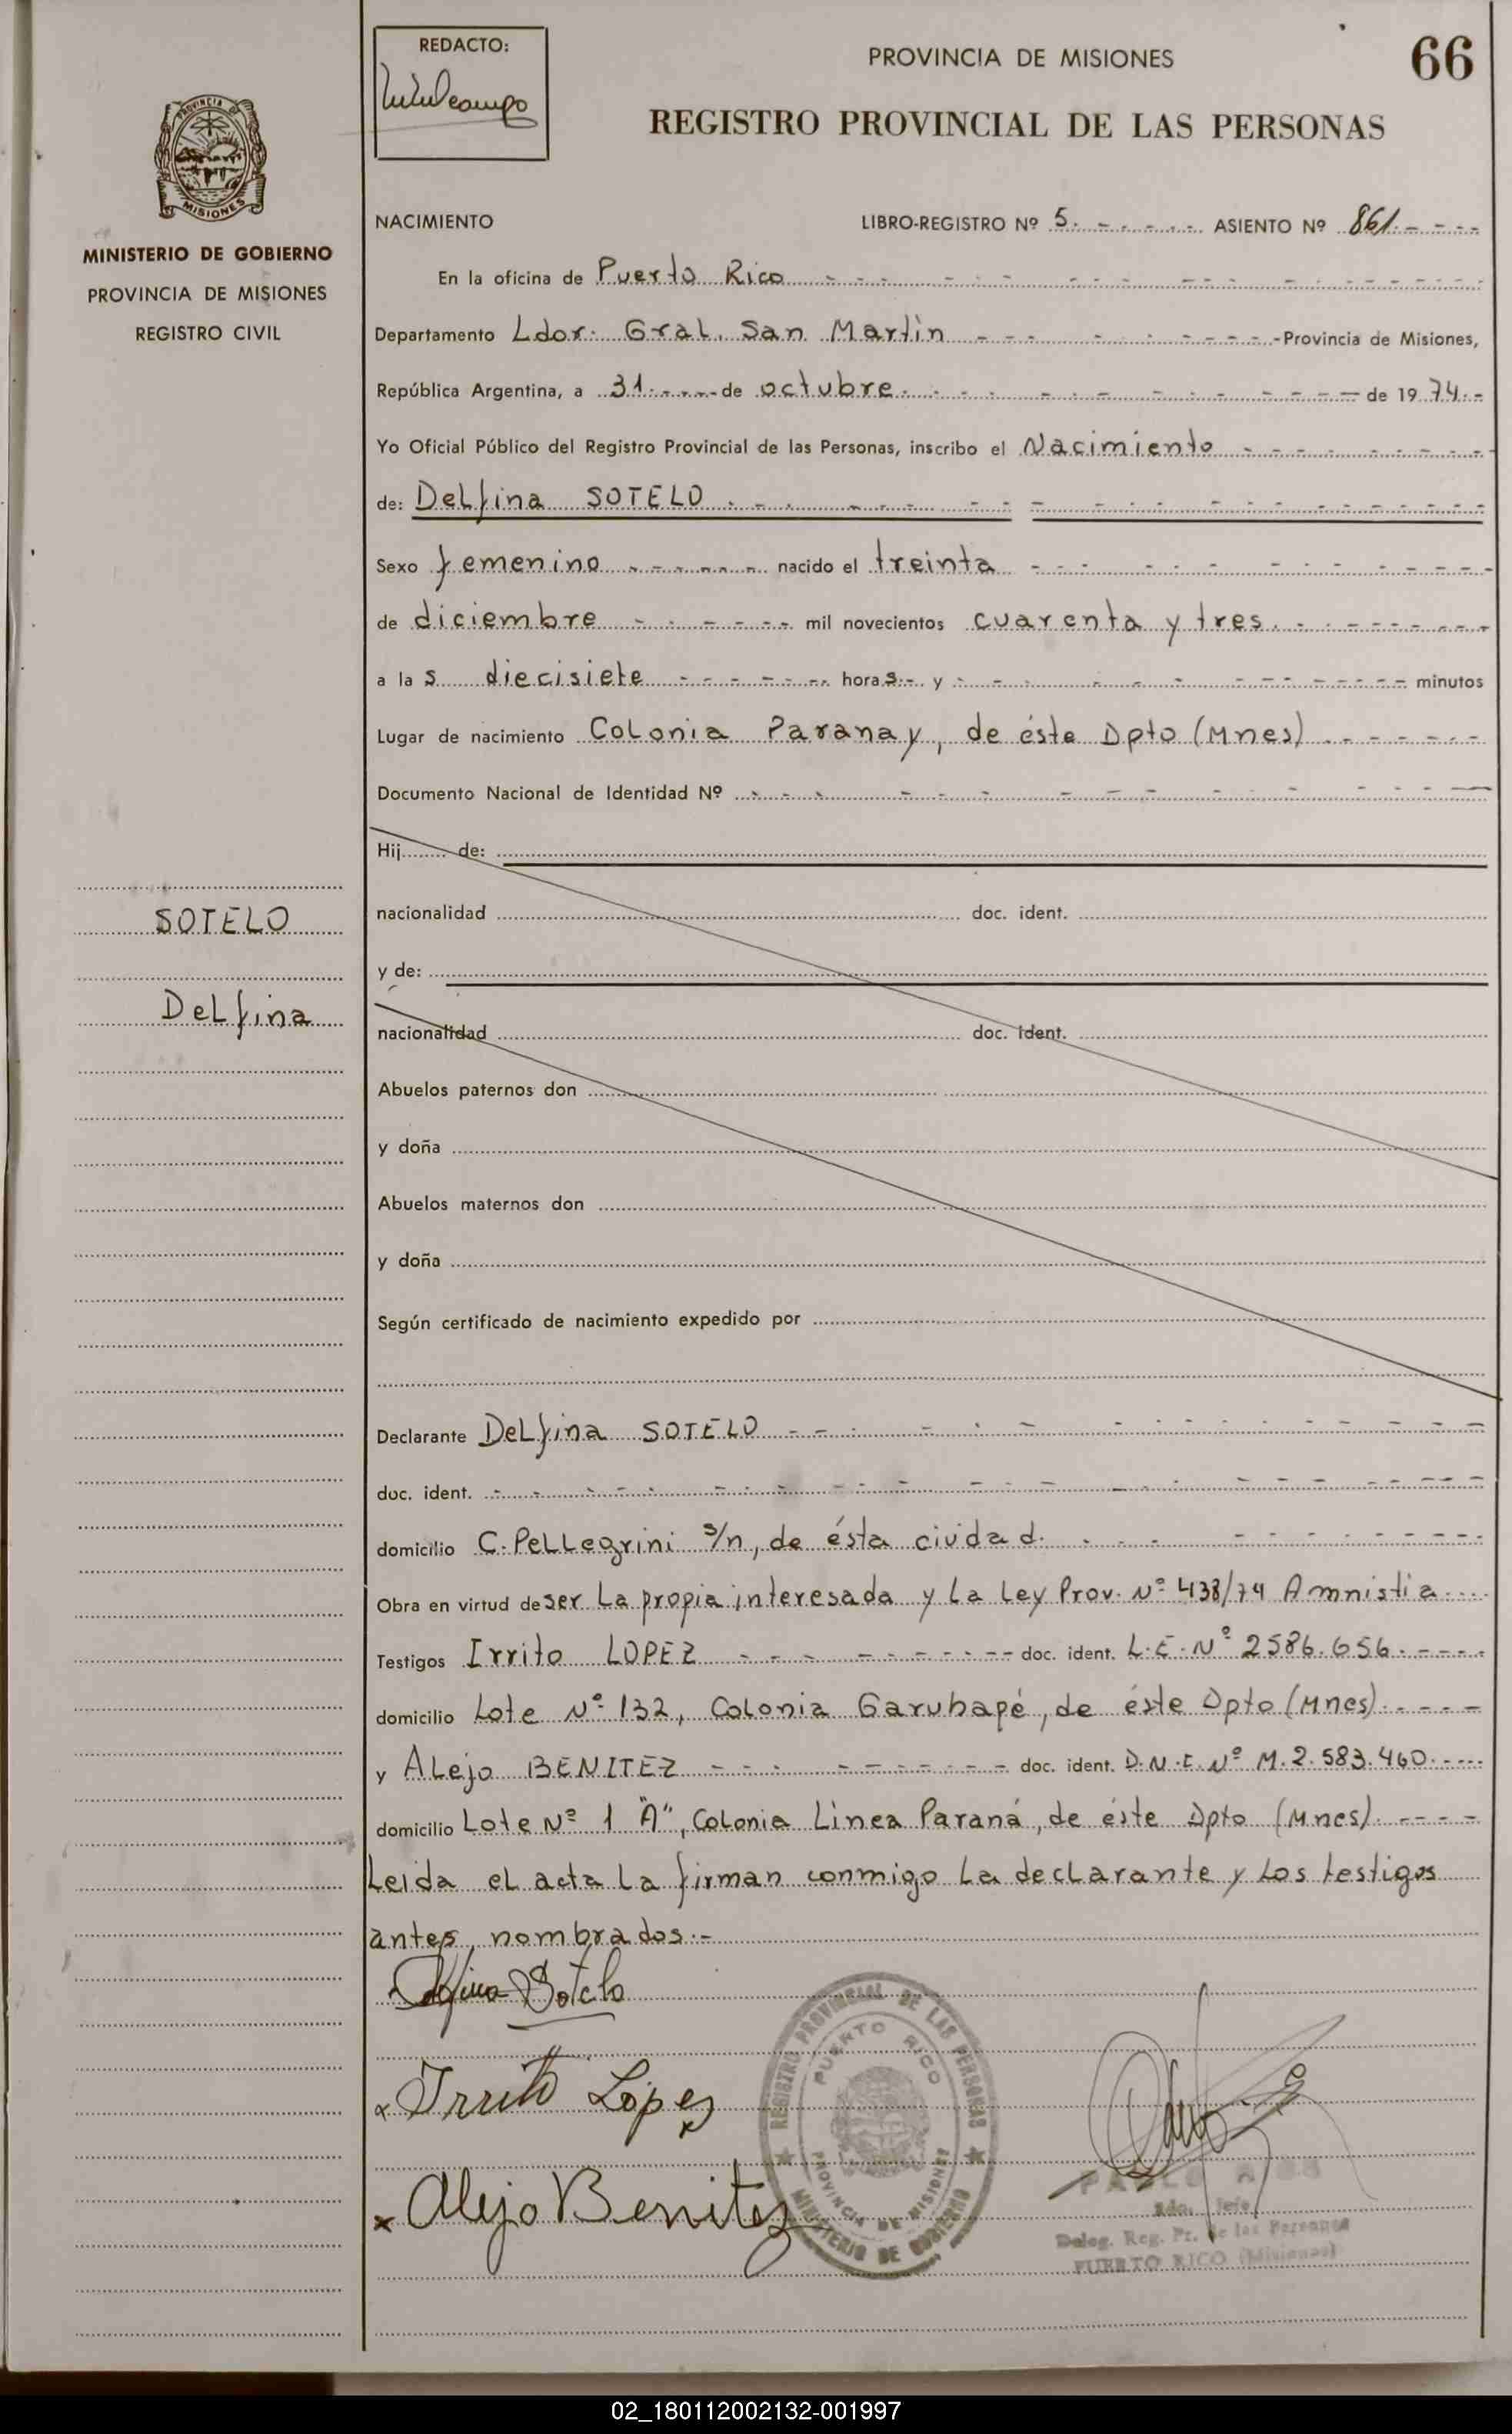 REDACTO:
PROVINCIA DE MISIONES
66
REGISTRO PROVINCIAL DE LAS PERSONAS
MISIONES
MINISTERIO DE GOBIERNO
PROVINCIA DE MISIONES
REGISTRO CIVIL
NACIMIENTO LIBRO-REGISTRO Nº 5. ASIENTO Nº 861.
En la oficina de Puerto Rico
Departamento Ldor. Gral. San Martin Provincia de Misiones,
República Argentina, a 31 de octubre de 1974.-
Yo Oficial Público del Registro Provincial de las Personas, inscribo el Nacimiento
de: Delfina SOTELO
Sexo femenino nacido el treinta
de diciembre mil novecientos cuarenta y tres.
a las diecisiete horas.- y minutos
Lugar de nacimiento Colonia Paranay, de éste Dpto (Mnes)
Documento Nacional de Identidad Nº
Hij de:
nacionalidad doc. ident.
SOTELO
y de:
Delfina
nacionalidad doc. ident.
Abuelos paternos don
y doña
Abuelos maternos don
y doña
Según certificado de nacimiento expedido por
Declarante Delfina SOTELO
doc. ident.
domicilio C. Pellegrini s/n, de ésta ciudad.
Obra en virtud de ser la propia interesada y la Ley Prov. Nº 438/74 Amnistia
Testigos Irrito LOPEZ doc. ident. L.E. Nº 2586.656.
domicilio Lote Nº 132, Colonia Garuhapé, de éste Dpto (Mnes).
y Alejo BENITEZ doc. ident. D.N.I. Nº M.2.583.460.
domicilio Lote Nº 1 "A", Colonia Linea Paraná, de éste Dpto (Mnes).
Leida el acta la firman conmigo la declarante y los testigos
antes nombrados.-
Delfina Sotelo
Irrito Lopez
x Alejo Benitez
REGISTRO PROVINCIAL DE LAS PERSONAS
PUERTO RICO
PROVINCIA DE MISIONES
MINISTERIO DE GOBIERNO
Jefe
Deleg. Reg. Pr. de las Personas
PUERTO RICO (Misiones)
02_180112002132-001997